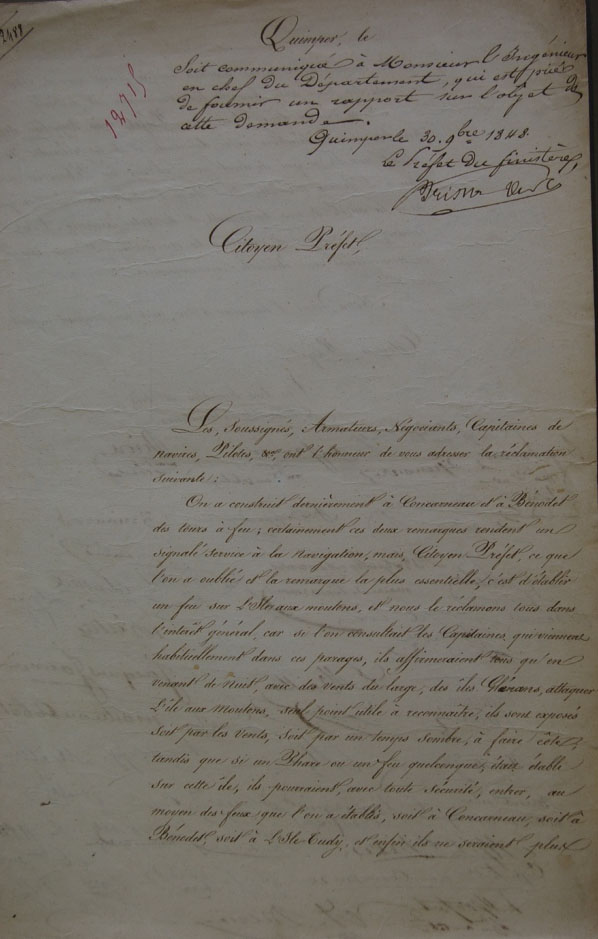 2488
12715
Quimper, le
Soit communiqué à Monsieur l'Ingénieur
en chef du Département, qui est prié
de fournir un rapport sur l'objet de
cette demande.
Quimper le 30. 9bre 1848.
Le Préfet du finistère,
Citoyen Préfet,
Les, Soussignés, Armateurs, Négociants, Capitaines de
navires, Pilotes, &a, ont l'honneur de vous adresser la réclamation
suivante :
On a construit dernièrement à Concarneau et à Bénodet
des tours à feu ; certainement ces deux remarques rendent un
signalé service à la navigation, mais, Citoyen Préfet, ce que
l'on a oublié et la remarque la plus essentielle, c'est d'établir
un feu sur l'Ile aux moutons, et nous le réclamons tous dans
l'intérêt général, car si l'on consultait les Capitaines, qui viennent
habituellement dans ces parages, ils affirmeraient tous qu'en
venant de Nuit, avec des vents du large, des îles Glénans, attaquer
L'île aux Moutons, seul point utile à reconnaître, ils sont exposés
soit par les vents, soit par un temps sombre, à faire côte,
tandis que si un Phare ou un feu quelconque, était établi
sur cette île, ils pourraient, avec toute sécurité, entrer, au
moyen des feux que l'on a établis, soit à Concarneau, soit à
Bénodet, soit à L'Ile Tudy, et enfin ils ne seraient plus